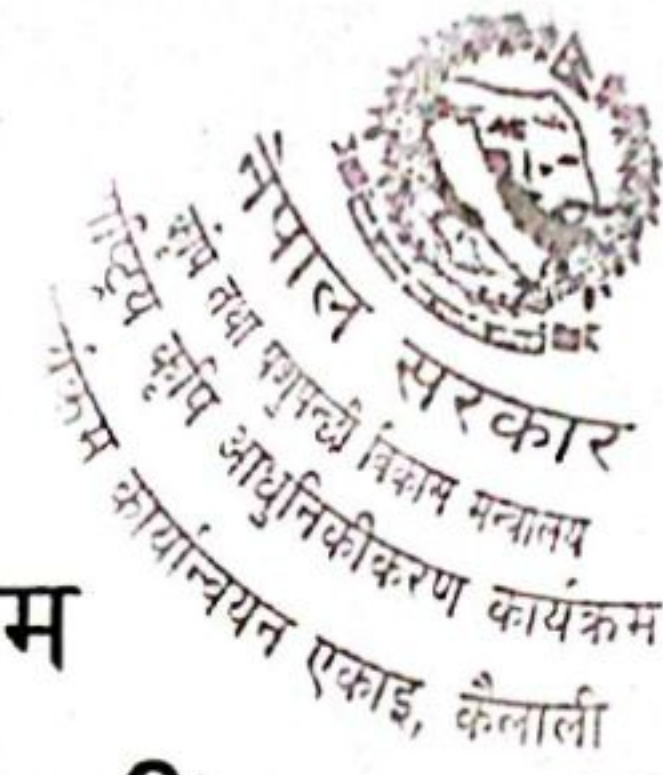 नेपाल सरकार
कृषि तथा पशुपन्छी विकास मन्त्रालय
राष्ट्रिय कृषि आधुनिकीकरण कार्यक्रम
कार्यान्वयन एकाइ, कैलाली
म